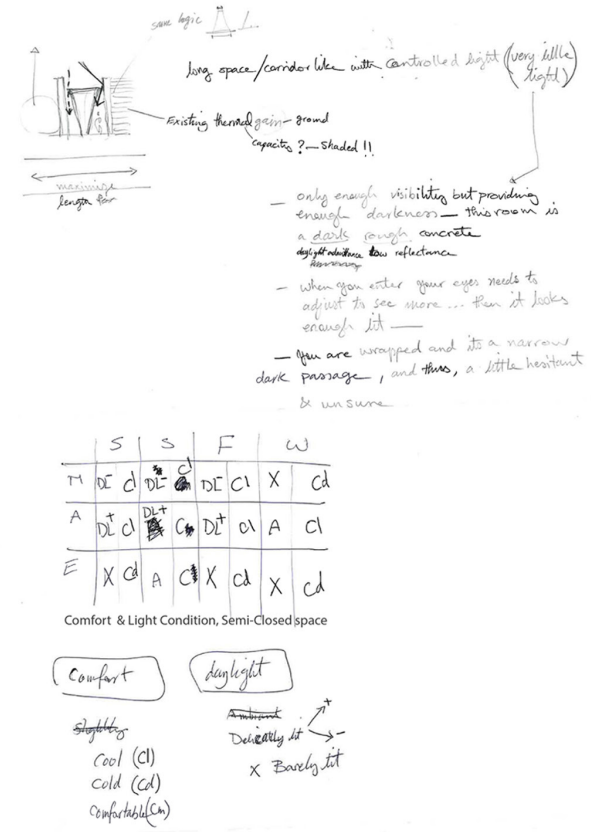 same logic
long space/corridor like with controlled light (very little light)
Existing thermal gain – ground
capacity? – shaded!!
maximize
length for
– only enough visibility but providing
enough darkness – this room is
a dark rough concrete
daylight admittance low reflectance
– when you enter your eyes needs to
adjust to see more... then it looks
enough lit –
– You are wrapped and its a narrow
dark passage, and thus, a little hesitant
& unsure
S S F W
M DL- Cl DL- Cl DL- Cl X Cd
A DL+ Cl DL+ C DL+ Cl A Cl
E X Cd A C X Cd X Cd
Comfort & Light Condition, Semi-Closed space
Comfort daylight
Slightly
Ambiant
+
Delicately lit
-
Cool (Cl)
X Barely lit
Cold (Cd)
Comfortable (Cm)